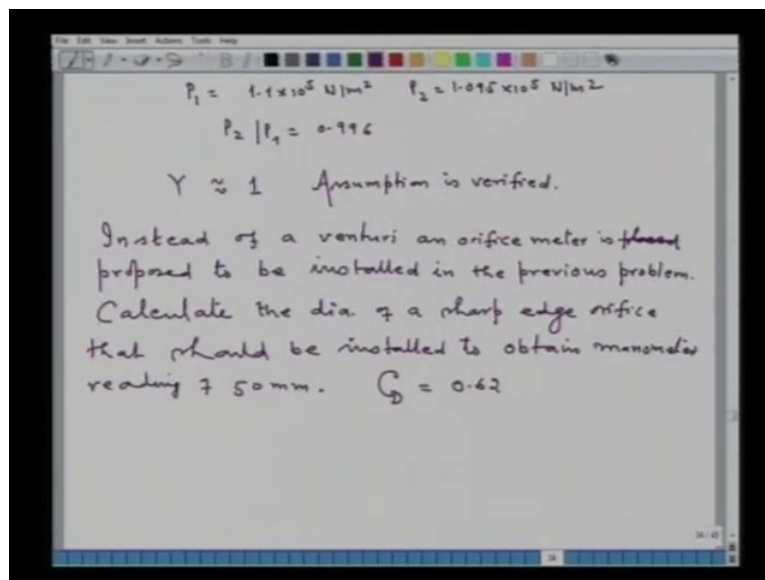 File Edit View Insert Actions Tools Help
P1 = 1.1×10^5 N/m2 P2 = 1.095×10^5 N/m2
P2 | P1 = 0.996
Y ≈ 1 Assumption is verified.
Instead of a venturi an orifice meter is
proposed to be installed in the previous problem.
Calculate the dia. of a sharp edge orifice
that should be installed to obtain manometer
reading of 50mm. CD = 0.62